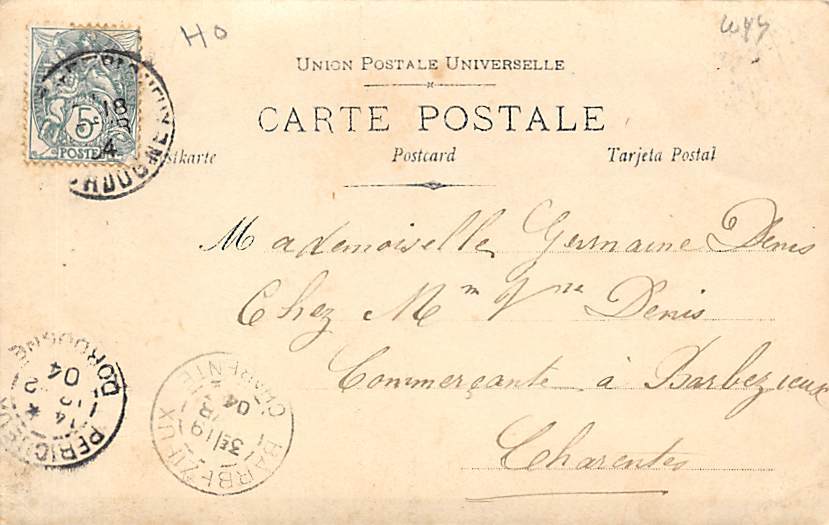 HO
UNION POSTALE UNIVERSELLE
CARTE POSTALE
stkarte Postcard Tarjeta Postal
5c
POSTES
18
4
DORDOGNE
Mademoiselle Germaine Denis
Chez Mm Vve Denis
Commerçante à Barbezieux
Charentes
PERIGUEUX
DORDOGNE
04
BARBEZIEUX
CHARENTE
3E / 19
04